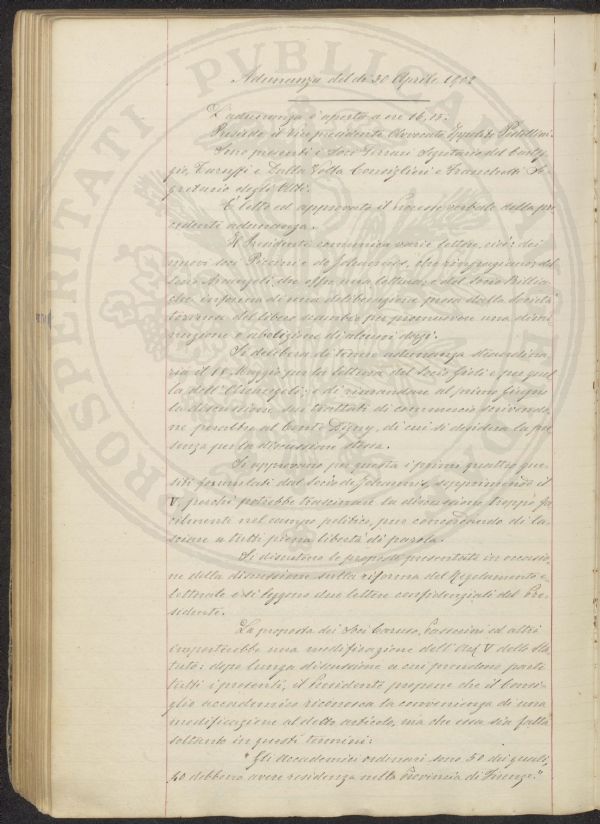 Adunanza del dì 30 Aprile 1902
L'adunanza è aperta a ore 16,15.
Presiede il vicepresidente Avvocato Ippolito Pestellini.
Sono presenti i Soci Ferrari Segretario del Carteg-
gio, Caruffi e Dalla Volta Consiglieri e Franchetti Se-
gretario degli Atti.
È letto ed approvato il Processo verbale della pre-
cedente adunanza.
Il Presidente comunica varie lettere, cioè: dei
nuovi soci Piccini e de Johannis, che ringraziano; del
Socio Arcangeli, che offre una lettura; e del Socio
che informa di una deliberazione presa dalla Società
del libero scambio per promuovere una dimi-
nuzione e abolizione di alcuni dazi.
Si delibera di tenere adunanza straordina-
ria il 11 Maggio per la lettura del Socio Gioli e per quel
la dell'Arcangeli; e di rimandare al primo Giugno
la discussione sui trattati di commercio scrivendo-
ne al Conte Digny, di cui si desidera la pre
senza per la discussione stessa.
Si approvano per questa i primi quattro que-
siti formulati dal Socio de Johannis, sopprimendo il
V, perché potrebbe trascinare la discussione troppo fa
cilmente nel campo politico, pur concordando di la-
sciare a tutti piena libertà di parola.
Si discutono le proposte presentate in occasio-
ne della discussione sulla riforma del Regolamento e-
lettorale e si leggono due lettere confidenziali del Pre-
sidente.
La proposta dei Soci Caruso, Passerini ed altri
importerebbe una modificazione dell'Art. V dello Sta-
tuto: dopo lunga discussione a cui prendono parte
tutti i presenti, il Presidente propone che il Consi-
glio accademico riconosca la convenienza di una
modificazione al detto articolo, ma che essa sia fatta
soltanto in questi termini:
"Gli accademici ordinari sono 50 dei quali,
40 debbono avere residenza nella Provincia di Firenze."
PROSPERITATI PVBLICAE